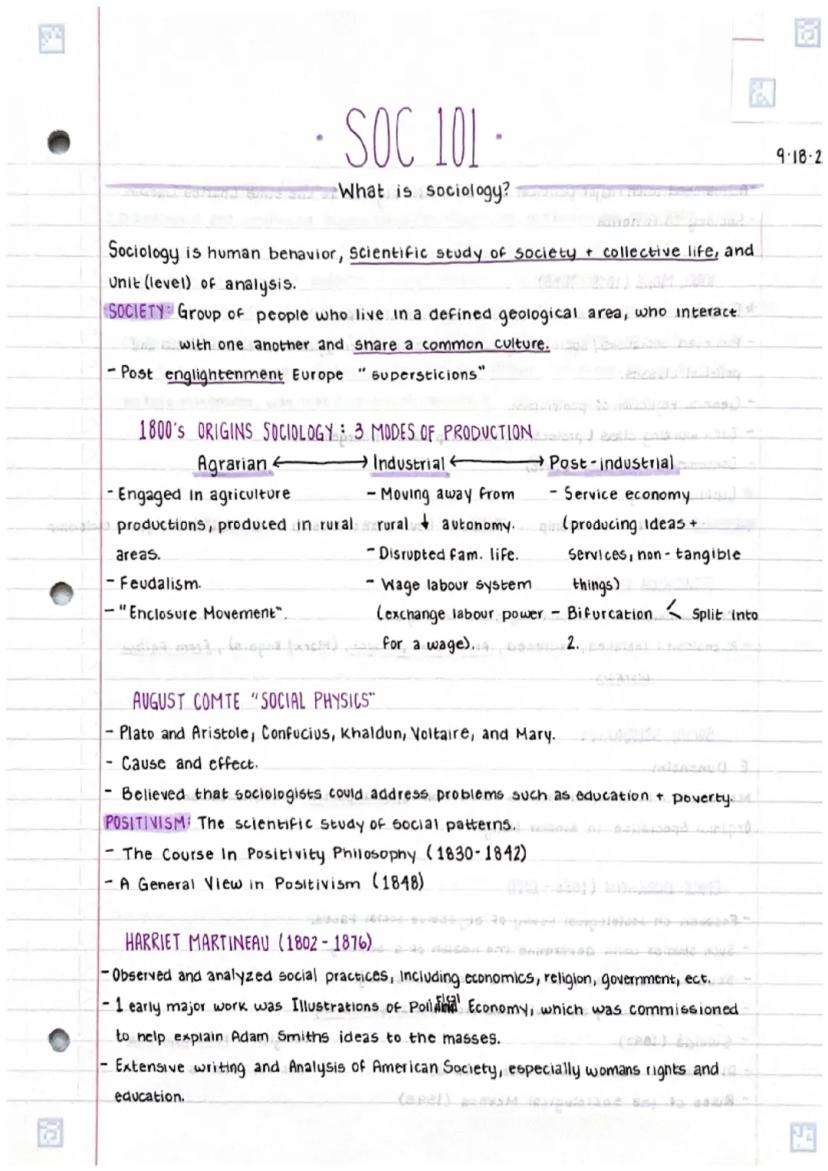 · SOC 101 ·
9-18-2
What is sociology?
Sociology is human behavior, scientific study of society + collective life, and
unit (level) of analysis.
SOCIETY: Group of people who live in a defined geological area, who interact
with one another and share a common culture.
- Post englightenment Europe "supersticions"
1800's ORIGINS SOCIOLOGY: 3 MODES OF PRODUCTION
Agrarian ⟷ Industrial ⟷ Post-industrial
- Engaged in agriculture
productions, produced in rural
areas.
- Feudalism.
- "Enclosure Movement".
- Moving away from
rural ↓ autonomy.
- Disrupted fam. life.
- Wage labour system
(exchange labour power
for a wage).
- Service economy
(producing ideas +
services, non-tangible
things)
- Bifurcation < Split into
2.
AUGUST COMTE "SOCIAL PHYSICS"
- Plato and Aristole, Confucius, Khaldun, Voltaire, and Mary.
- Cause and effect.
- Believed that sociologists could address problems such as education + poverty.
POSITIVISM: The scientific study of social patterns.
- The Course In Positivity Philosophy (1830-1842)
- A General View in Positivism (1848)
HARRIET MARTINEAU (1802-1876)
- Observed and analyzed social practices, including economics, religion, government, ect.
- 1 early major work was Illustrations of Political Economy, which was commissioned
to help explain Adam Smiths ideas to the masses.
- Extensive writing and Analysis of American Society, especially womans rights and
education.